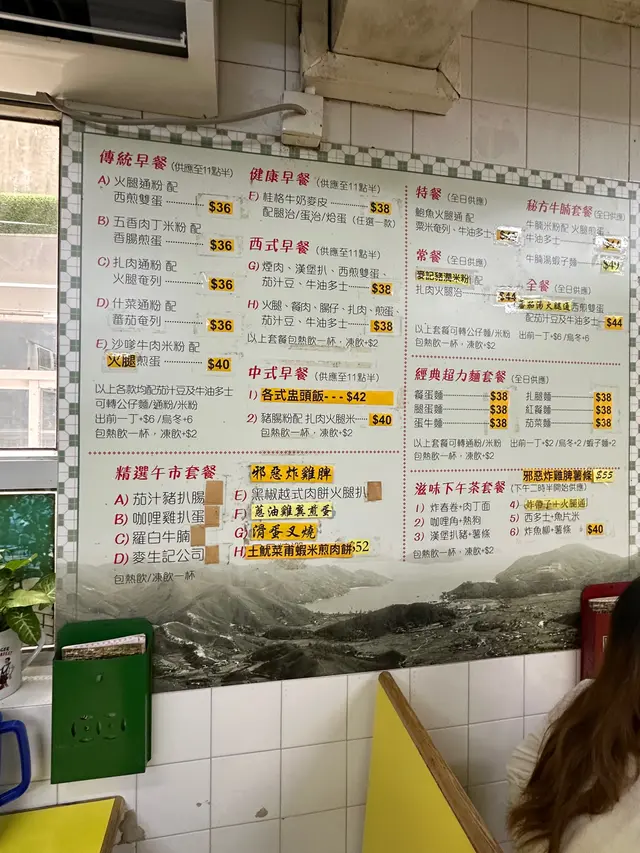 傳統早餐 (供應至11點半)
A) 火腿通粉 配
西煎雙蛋 $36
B) 五香肉丁米粉 配
香腸煎蛋 $36
C) 扎肉通粉 配
火腿奄列 $36
D) 什菜通粉 配
蕃茄奄列 $36
E) 沙嗲牛肉米粉 配
火腿煎蛋 $40
以上各款均配茄汁豆及牛油多士
可轉公仔麵/通粉/米粉
出前一丁+$6 /烏冬+6
包熱飲一杯，凍飲+$2
健康早餐 (供應至11點半)
F) 桂格牛奶麥皮 $38
配腿治/蛋治/烚蛋 (任選一款)
西式早餐 (供應至11點半)
G) 煙肉、漢堡扒、西煎雙蛋、
茄汁豆、牛油多士 $38
H) 火腿、餐肉、腸仔、扎肉、煎蛋、
茄汁豆、牛油多士 $38
以上套餐包熱飲一杯，凍飲+$2
中式早餐 (供應至11點半)
1) 各式盅頭飯---$42
2) 豬腸粉配 扎肉火腿米 $40
包熱飲一杯，凍飲+$2
特餐 (全日供應)
鮑魚火腿通 配
粟米奄列、牛油多士
常餐 (全日供應)
麥記豬潤米粉
扎肉火腿治 $44
秘方牛腩套餐 (全日供應)
牛腩米粉配 火腿煎蛋
牛油多士
牛腩湯蝦子麵 $49
全餐 (全日供應)
蕃茄湯火腿通 西煎雙蛋
配茄汁豆及牛油多士 $44
以上套餐可轉公仔麵/米粉 出前一丁+$6 /烏冬+6
包熱飲一杯，凍飲+$2
經典超力麵套餐 (全日供應)
餐蛋麵 $38 扎腿麵 $38
腿蛋麵 $38 紅餐麵 $38
蛋牛麵 $38 茄菜麵 $38
以上套餐可轉通粉/米粉 出前一丁+$2 /烏冬+2 /蝦子麵+2
包熱飲一杯，凍飲+$2
精選午市套餐
A) 茄汁豬扒腸
B) 咖哩雞扒蛋
C) 羅白牛腩
D) 麥生記公司
包熱飲/凍飲
邪惡炸雞脾
E) 黑椒越式肉餅火腿扒
F) 蔥油雞翼煎蛋
G) 滑蛋叉燒
H) 土魷菜甫蝦米煎肉餅 $52
邪惡炸雞脾薯條 $55
滋味下午茶套餐 (下午二時半開始供應)
1) 炸春卷+肉丁面
2) 咖哩角+熱狗
3) 漢堡扒豬+薯條
4) 炸帶子+火腿通
5) 西多士+魚片米
6) 炸魚柳+薯條 $40
包熱飲一杯，凍飲+$2